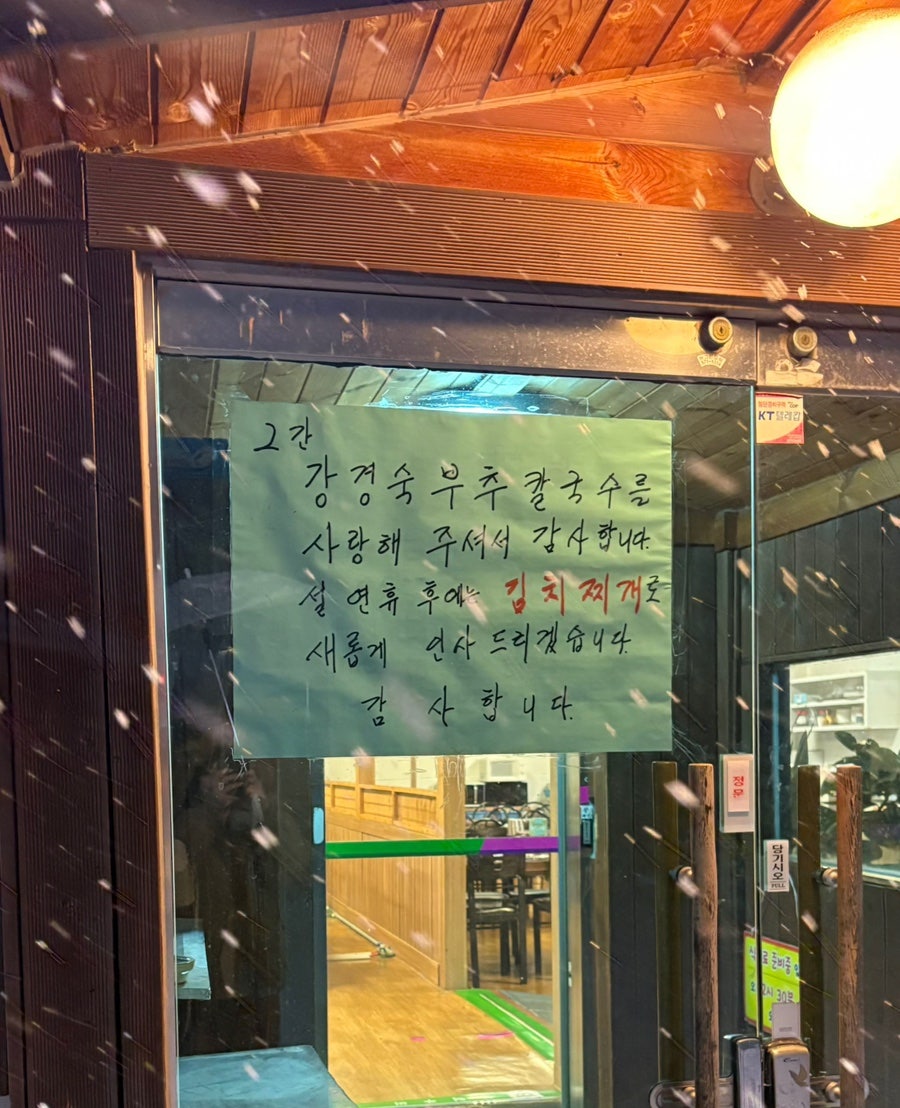 그간
강경숙 부추 칼국수를
사랑해 주셔서 감사합니다.
설 연휴 후에는 김치찌개로
새롭게 인사드리겠습니다.
감사합니다.
KT텔레캅
정문
당기시오
PULL
준비중
30분